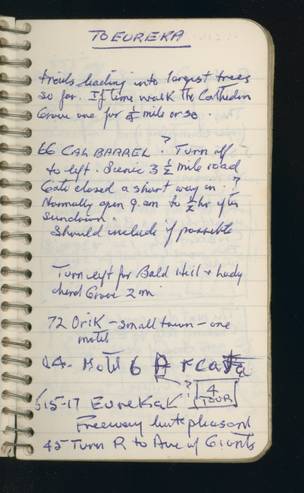 TO EUREKA
trails leading into largest trees
so far. If time walk the Cathedral
Grove one for ¼ mile or so.
66 CAL BARREL ? Turn off
to left. Scenic 3 ½ mile road
Gate closed a short way in. ?
Normally open 9 am to ½ hr after
sundown.
Should include if possible
Turn left for Bald Hill + Lady
Grove 2 m
72 Orik - small town - one
motel
Motel 6 Arcata
? 4
TOUR
15-17 Eureka
Freeway but pleasant
45 Turn R to Ave of Giants